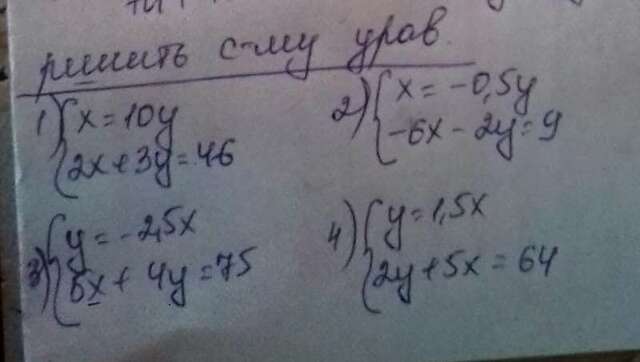 решить с-му урав.
1) { x = 10y
2x + 3y = 46
2) { x = -0,5y
-6x - 2y = 9
3) { y = -2,5x
5x + 4y = 75
4) { y = 1,5x
2y + 5x = 64